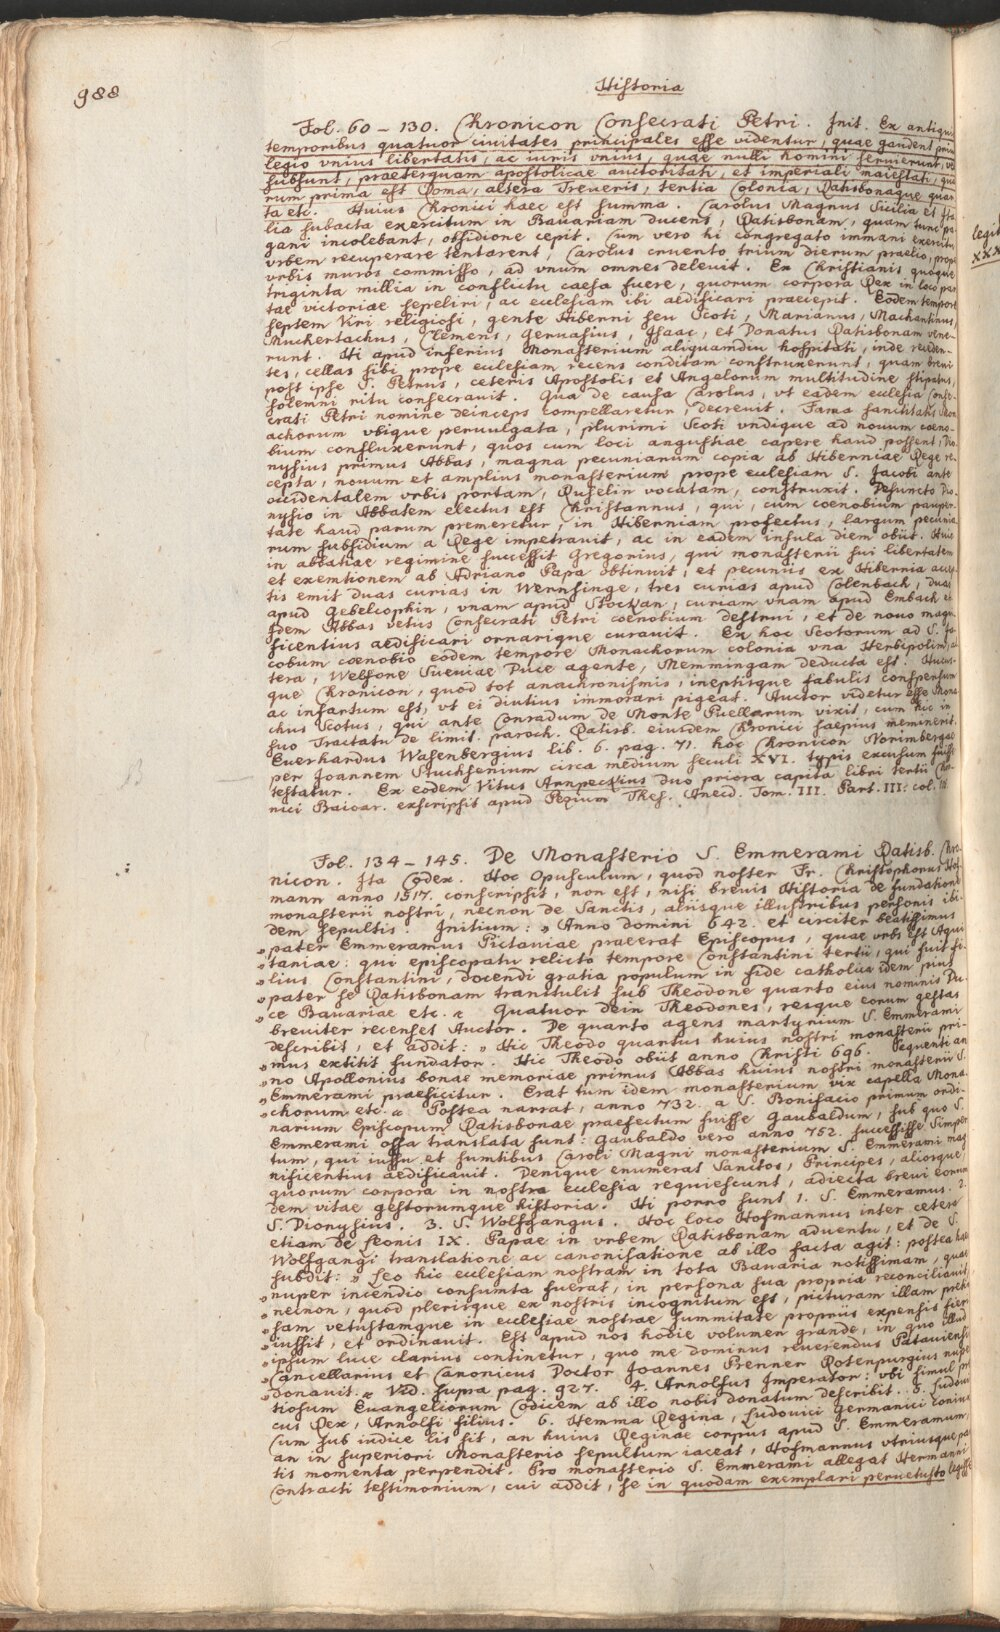 988
Historia
Fol. 60 – 130. Chronicon Consecrati Petri. Init. Ex antiquis
temporibus quatuor civitates principales esse videntur, quae gaudent privi
legio vnius libertatis, ac iuris vnius, quae nulli homini seruierunt, vel
subsunt, praeterquam apostolicae auctoritati, et imperiali maiestati, qua
rum prima est Roma, altera Treueris, tertia Colonia, Ratisbonaque quar
ta etc. Huius Chronici haec est summa. Carolus Magnus Sicilia et Ita
lia subacta exercitum in Bauariam ducens, Ratisbonam, quam tunc pa
gani incolebant, obsidione cepit. Cum vero hi congregato immani exercitu
vrbem recuperare tentarent, Carolus cruento trium dierum praelio, prope
vrbis muros commisso, ad vnum omnes deleuit. Ex Christianis quoque
triginta millia in conflictu caesa fuere, quorum corpora Rex in loco par
tae victoriae sepeliri, ac ecclesiam ibi aedificari praecepit. Eodem tempore
septem Viri religiosi, gente Hiberni seu Scoti, Marianus, Machantinus,
Muckertachus, Clemens, Geruasius, Isaac, et Donatus Ratisbonam vene-
runt. Hi apud inferius Monasterium aliquamdiu hospitati, inde receden-
tes, cellas sibi prope ecclesiam recens conditam construxerunt, quam breui
post ipse S. Petrus, ceteris Apostolis et Angelorum multitudine stipatus,
solemni ritu consecrauit. Qua de causa Carolus, vt eadem ecclesia Conse-
crati Petri nomine deinceps compellaretur, decreuit. Fama sanctitatis Mon
achorum vbique peruulgata, plurimi Scoti vndique ad nouum coeno-
bium confluxerunt, quos cum loci angustiae capere haud possent, Dio
nysius primus Abbas, magna pecuniarum copia ab Hiberniae Rege re-
cepta, nouum et amplius monasterium prope ecclesiam S. Jacobi ante
occidentalem vrbis portam, Ruselin vocatam, construxit. Defuncto Dio-
nysio in Abbatem electus est Christannus, qui, cum coenobium pauper-
tate haud parum premeretur, in Hiberniam profectus, largum pecunia
rum subsidium a Rege impetrauit, ac in eadem insula diem obiit. Huic
in abbatiae regimine successit Gregorius, qui monasterii sui libertatem
et exemtionem ab Adriano Papa obtinuit, et pecuniis ex Hibernia accep
tis emit duas curias in Wernsinge, tres curias apud Colenbach, duas
apud Gebelcophin, vnam apud Stockan, curiam vnam apud Embach etc
Idem Abbas vetus Consecrati Petri coenobium destrui, et de nouo magni
ficentius aedificari ornarique curauit. Ex hoc Scotorum ad S. Ja
cobum coenobio eodem tempore Monachorum colonia vna Herbipolim, al
tera, Welfone Sueuiae Duce agente, Memmingam deducta est. Hucus-
que Chronicon, quod tot anachronismis, ineptisque fabulis conspersum
ac infartum est, vt ei diutius immorari pigeat. Auctor videtur esse Mona
chus Scotus, qui ante Conradum de Monte Puellarum vixit, cum hic in
suo Tractatu de limit. paroch. Ratisb. eiusdem Chronici saepius meminerit.
Euerhardus Wasenbergius lib. 6. pag. 71. hoc Chronicon Norimbergae
per Joannem Stuchsenium circa medium seculi XVI. typis excusum fuisse
testatur. Ex eodem Vitus Arnpeckius duo priora capita libri tertii Chro-
nici Baioar. exscripsit apud Pezium Thes. Anecd. Tom. III. Part. III. col.
Fol. 134 – 145. De Monasterio S. Emmerami Ratisb. Chro-
nicon. Ita Codex. Hoc Opusculum, quod noster Fr. Christophorus Hof
mann anno 1517. conscripsit, non est, nisi breuis Historia de fundatione
monasterii nostri, necnon de Sanctis, aliisque illustribus personis ibi
dem sepultis. Initium: „ Anno domini 642. et circiter beatissimus
„ pater Emmeramus Pictauiae praeerat Episcopus, quae vrbs est Aqui
„ taniae: qui episcopatu relicto tempore Constantini tertii, qui fuit fi
„ lius Constantini, docendi gratia populum in fide catholica idem pius
„ pater se Ratisbonam transtulit sub Theodone quarto eius nominis Du
„ ce Bauariae etc. „ Quatuor dein Theodones, resque eorum gestas
breuiter recenset Auctor. De quarto agens martyrium S. Emmerami
describit, et addit: „ Hic Theodo quartus huius nostri monasterii pri-
„ mus extitit fundator. Hic Theodo obiit anno Christi 696. Sequenti an
„ no Apollonius bonae memoriae primus Abbas huius nostri monasterii S.
„ Emmerami praeficitur. Erat tum idem monasterium vix capella Mona-
„ chorum etc. „ Postea narrat, anno 732. a S. Bonifacio primum ordi-
narium Episcopum Ratisbonae praefectum fuisse Gaubaldum, sub quo S.
Emmerami ossa translata sunt: Gaubaldo vero anno 752. successisse Simper
tum, qui iussu et sumtibus Caroli Magni monasterium S. Emmerami mag
nificentius aedificauit. Denique enumerat Sanctos, Principes, aliosque,
quorum corpora in nostra ecclesia requiescunt, adiecta breui eorum
dem vitae gestorumque historia. Hi porro sunt 1. S. Emmeramus. 2.
S. Dionysius. 3. S. Wolfgangus. Hoc loco Hofmannus inter cetera
etiam de Leonis IX. Papae in vrbem Ratisbonam aduentu, et de S.
Wolfgangi translatione ac canonisatione ab illo facta agit: postea haec
subdit: „ Leo hic ecclesiam nostram in tota Bauaria notissimam, quae
„ nuper incendio consumta fuerat, in persona sua propria reconciliauit,
„ necnon, quod plerisque ex nostris incognitum est, picturam illam preti
„ sam vetustamque in ecclesiae nostrae summitate propriis expensis fieri
„ iussit, et ordinauit. Est apud nos hodie volumen grande, in quo illud
„ ipsum luce clarius continetur, quo me dominus reuerendus Patauiensis
„ Cancellarius et Canonicus Doctor Joannes Prenner Rotenpurgius nuper
„ donauit. „ Vid. supra pag. 927. 4. Arnolfus Imperator: vbi simul pre
tiosum Euangeliorum Codicem ab illo nobis donatum describit. 5. Ludoui
cus Rex, Arnolfi filius. 6. Hemma Regina, Ludouici Germanici coniux
Cum sub iudice lis sit, an huius Reginae corpus apud S. Emmeramum,
an in superiori Monasterio sepultum iaceat, Hofmannus vtriusque par
tis momenta perpendit. Pro monasterio S. Emmerami allegat Hermanni
Contracti testimonium, cui addit, se in quodam exemplari peruetusto legisse